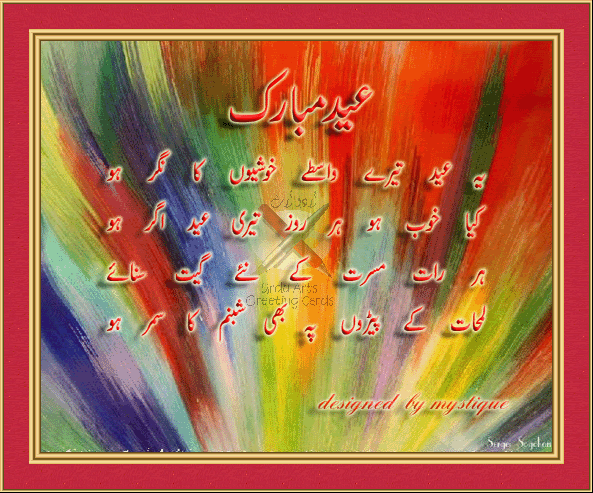 عید مبارک
یہ عید تیرے واسطے خوشیوں کا نگر ہو
کیا خوب ہو ہر روز تیری عید اگر ہو
ہر رات مسرت کے نئے گیت سنائے
لمحات کے پیڑوں پہ بھی شبنم کا سمر ہو
Urdu Arts
Greeting Cards
designed by mystique